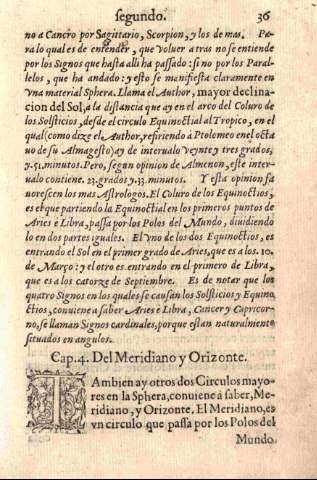 segundo. 36
no a Cancro por Sagittario, Scorpion, y los de mas. Pa-
ra lo qual es de entender, que voluer a tras no se entiende
por los Signos que hasta alli ha passado: si no por los Paral-
lelos, que ha andado: y esto se manifiesta claramente en
vna material Sphera. Llama el Author, mayor declina
cion del Sol, a la distancia que ay en el arco del Coluro de
los Solsticios, desde el circulo Equinoctial al Tropico, en el
qual (como dize el Author, refiriendo à Ptolomeo en el octa
uo de su Almagesto) ay de interualo veynte y tres grados,
y. 51. minutos. Pero, segun opinion de Almenon, este inter-
ualo contiene. 23. grados y. 33. minutos. Y esta opinion fa
uorescen los mas Astrologos. El Coluro de los Equinoctios,
es el que partiendo la Equinoctial en los primeros puntos de
Aries e Libra, passa por los Polos del Mundo, diuidiendo
lo en dos partes iguales. El vno de los dos Equinoctios, es
entrando el Sol en el primer grado de Aries, que es a los. 10.
de Março: y el otro es entrando en el primero de Libra,
que es a los catorze de Septiembre. Es de notar que los
quatro Signos en los quales se causan los Solsticios y Equino
ctios, conuiene a saber Aries e Libra, Cancer y Capricor-
no, se llaman Signos cardinales, porque estan naturalmente
situados en angulos.
Cap. 4. Del Meridiano y Orizonte.
TAmbien ay otros dos Circulos mayo-
res en la Sphera, conuiene à saber, Me-
ridiano, y Orizonte. El Meridiano, es
vn circulo que passa por los Polos del
Mundo.